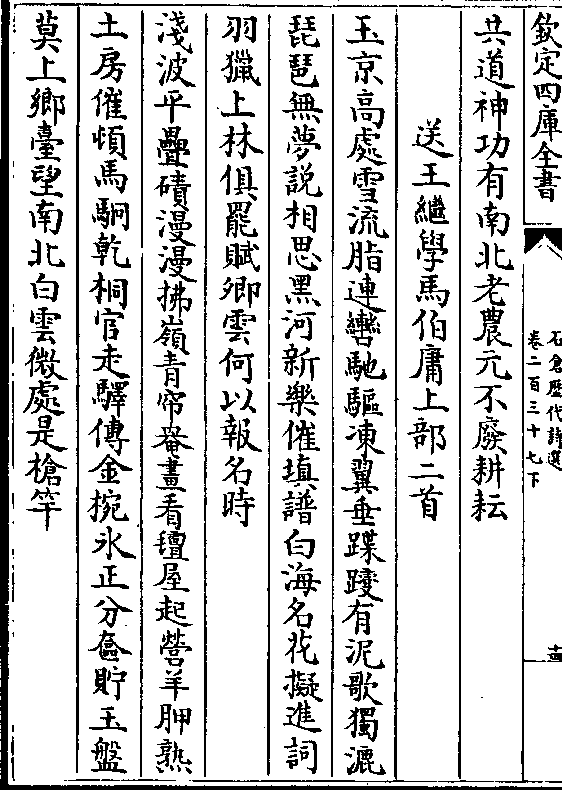 欽定四庫全書
石倉歷代詩選
卷二百三十七下
共道神功有南北老農元不廢耕耘
送王繼學馬伯庸上部二首
玉京高處雪流脂連轡馳驅凍翼垂蹀躞有泥歌獨漉
琵琶無夢說相思黑河新樂催填譜白海名花擬進詞
羽獵上林俱罷賦卿雲何以報名時
淺波平疊磧漫漫拂嶺青帘罨畫看氊屋起營羊胛熟
土房催頓馬駧乾桐官走驛傳金椀氷正分奩貯玉盤
莫上鄉臺望南北白雲微處是槍竿